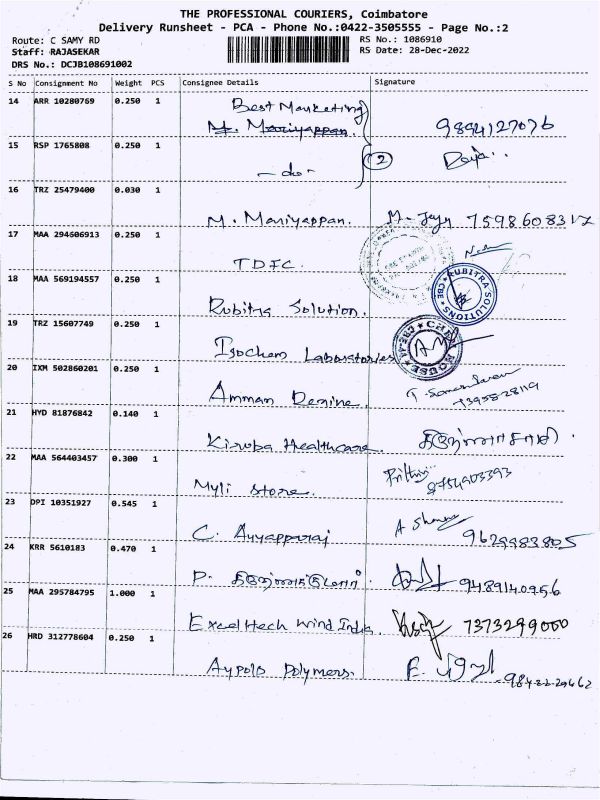 THE PROFESSIONAL COURIERS, Coimbatore
Delivery Runsheet - PCA - Phone No.:0422-3505555 - Page No.:2
Route: C SAMY RD RS No.: 1086910
Staff: RAJASEKAR RS Date: 28-Dec-2022
DRS No.: DCJB108691002
S No Consignment No Weight PCS Consignee Details Signature
14 ARR 10280769 0.250 1 Best Marketing
M. Mariyappan. 9894127076
15 RSP 1765808 0.250 1 - do - 2
16 TRZ 25479400 0.030 1 M. Mariyappan. 7598608317
17 MAA 294606913 0.250 1 TDFC
18 MAA 569194557 0.250 1 Rubitra Solution. RUBITRA SOLUTIONS CBE
19 TRZ 15607749 0.250 1 Isochem Laboratories
20 IXM 502860201 0.250 1 Amman Degine.
21 HYD 81876842 0.140 1 Kiruba Healthcare.
22 MAA 564403457 0.300 1 Myli Store. 8754903393
23 DPI 10351927 0.545 1 C. Ayyappuraj 9629983805
24 KRR 5610183 0.470 1 P. 9489140956
25 MAA 295784795 1.000 1 Exceltech Wind India. 7373299000
26 HRD 312778604 0.250 1 Aypols Polymers.